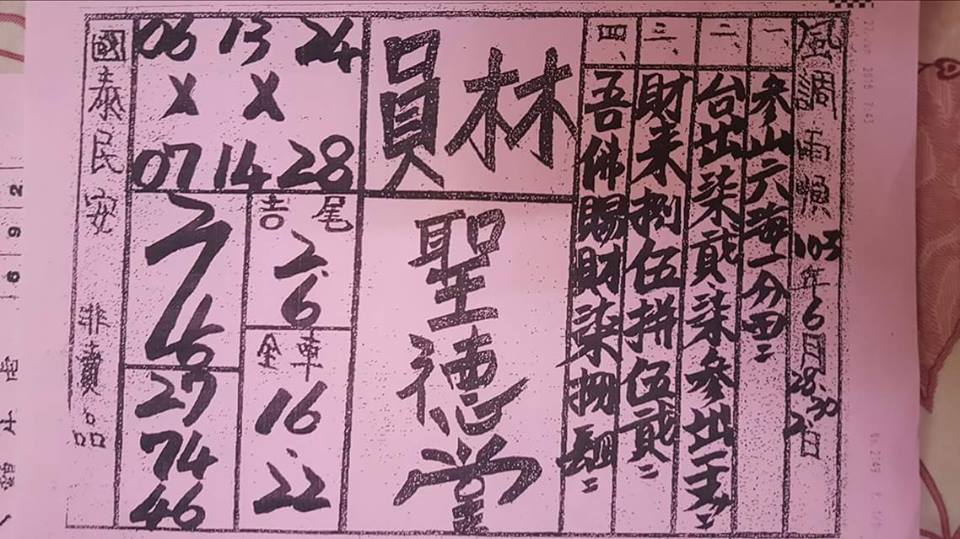 風調雨順 103年6月28.30 2日
一、參山六海一分田
二、台出柒貳柒參出
三、財來捌伍拼伍貳
四、吾佛賜財柒捌
員林
聖德堂
06 13 24
X X
07 14 28
吉尾
2.6
金車
16
22
27
74
46
國泰民安 非賣品